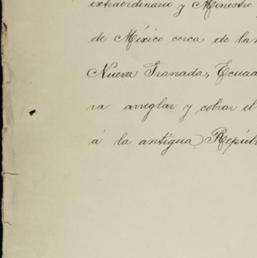 extraordinario y Ministro
de México cerca de la
Nueva Granada, Ecua
ra arreglar y cobrar el
á la antigua Repúb